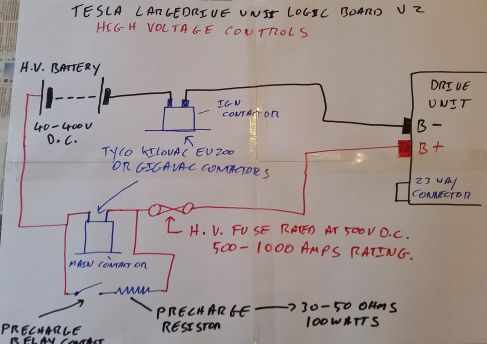 TESLA LARGEDRIVE UNIT LOGIC BOARD V2
HIGH VOLTAGE CONTROLS
H.V. BATTERY
40-400V
D.C.
IGN
CONTACTOR
DRIVE
UNIT
B-
B+
TYCO KILOVAC EV200
OR GIGAVAC CONTACTORS
23 WAY
CONNECTOR
H.V. FUSE RATED AT 500V D.C.
500-1000 AMPS RATING.
MAIN CONTACTOR
PRECHARGE
RELAY CONTACT
PRECHARGE
RESISTOR
30-50 OHMS
100WATTS